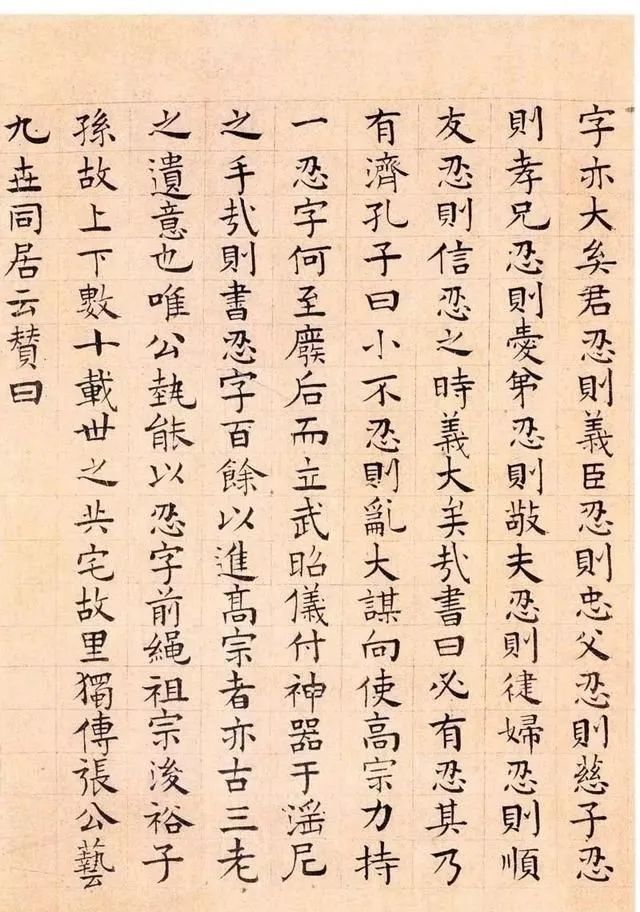 字亦大矣君忍則義臣忍則忠父忍則慈子忍
則孝兄忍則愛弟忍則敬夫忍則徤婦忍則順
友忍則信忍之時義大矣㢤書曰必有忍其乃
有濟孔子曰小不忍則亂大謀向使高宗力持
一忍字何至廢后而立武昭儀付神器于淫尼
之手㢤則書忍字百餘以進髙宗者亦古三老
之遺意也唯公執能以忍字前繩祖宗浚裕子
孫故上下數十載世之共宅故里獨傳張公藝
九世同居云賛曰